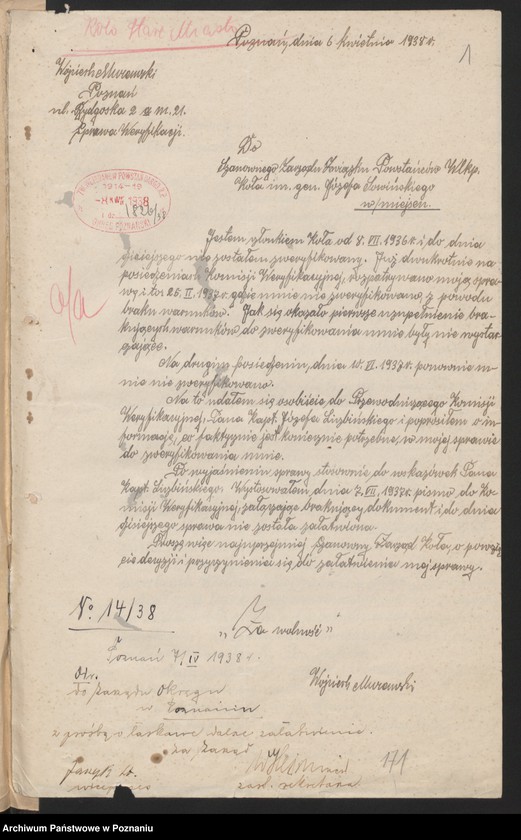 Koło Stare Miasto
Poznań, dnia 6 kwietnia 1938 r.
1
Wojciech Murawski
Poznań
ul. Bydgoska 2 a m. 21.
Sprawa Weryfikacji.
Do
Szanownego Zarządu Związku Powstańców Wlkp.
Koła im. gen. Józefa Sowińskiego
w/miejscu.
1914-19
1938
1826/38
Jestem członkiem Koła od 8. VII. 1936 r. i do dnia
dzisiejszego nie zostałem zweryfikowany. Już dwukrotnie na
posiedzeniach Komisji Weryfikacyjnej, rozpatrywano moją spra-
wę i to: 25. II. 1937 r. gdzie mnie nie zweryfikowano, z powodu
braku warunków. Jak się okazało pierwsze uzupełnienie bra-
kujących warunków do zweryfikowania mnie były nie wystar-
czające.
a/a
Na drugim posiedzeniu, dnia 10. VI. 1937 r. ponownie m-
nie nie zweryfikowano.
Na to udałem się osobiście do Przewodniczącego Komisji
Weryfikacyjnej, Pana Kapt. Józefa Lizbińskiego i poprosiłem o in-
formację, co faktycznie jest koniecznie potrzebne, w mojej sprawie
do zweryfikowania mnie.
Po wyjaśnieniu sprawy, stosownie do wskazówek Pana
Kapt. Lizbińskiego. Wystosowałem dnia 2. VII. 1937 r. pismo, do Ko-
misji Weryfikacyjnej, załączając brakujący dokument i do dnia
dzisiejszego sprawa nie została załatwiona.
Proszę więc najuprzejmiej Szanowny Zarząd Koła, o powzię-
cie decyzji i przyczynienia się, do załatwienia mej sprawy.
No 14/38
"Za wolność"
Poznań 7/IV 1938 r.
Wojciech Murawski
do Zarządu Okręgu
w Poznaniu
z prośbą o łaskawe dalsze załatwienie.
za Zarząd
171
zast. sekretarza
Archiwum Państwowe w Poznaniu